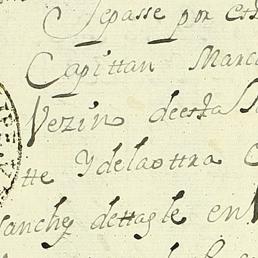 Sepasse por est
Capittan Marc
Vezin deesta
tte Ydelaottra
anchez dettagle en